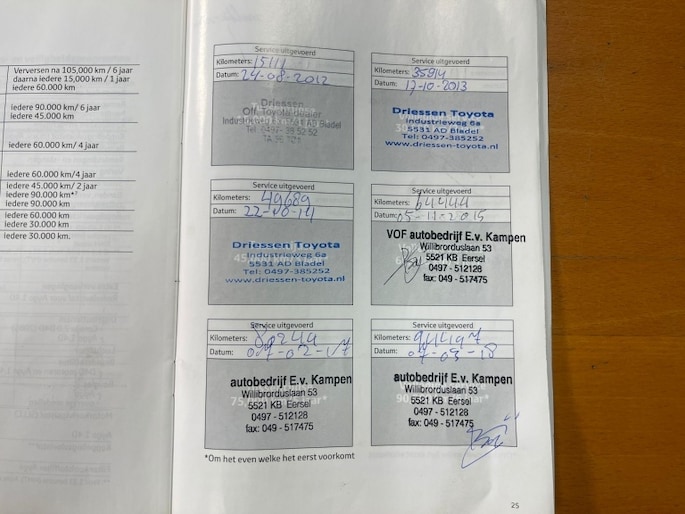 Verversen na 105,000 km / 6 jaar
daarna iedere 15,000 km / 1 jaar
iedere 60.000 km
iedere 90.000 km/ 6 jaar
iedere 45.000 km
iedere 60.000 km/ 4 jaar
iedere 60.000 km/4 jaar
iedere 45.000 km/ 2 jaar
iedere 90.000 km*²
iedere 90.000 km
iedere 60.000 km
iedere 30.000 km
iedere 30.000 km.
Service uitgevoerd
Kilometers: 15111
Datum: 24-08-2012
Driessen
Off. Toyota dealer
Tel 0497- 38 52 52
Service uitgevoerd
Kilometers: 35814
Datum: 17-10-2013
Driessen Toyota
Industrieweg 6a
5531 AD Bladel
Tel: 0497-385252
www.driessen-toyota.nl
Service uitgevoerd
Kilometers: 49689
Datum: 22-10-14
Driessen Toyota
Industrieweg 6a
5531 AD Bladel
Tel: 0497-385252
www.driessen-toyota.nl
Service uitgevoerd
Kilometers: 64444
Datum: 05-11-2015
VOF autobedrijf E.v. Kampen
Willibrorduslaan 53
5521 KB Eersel
0497 - 512128
fax: 049 - 517475
Service uitgevoerd
Kilometers:
Datum:
autobedrijf E.v. Kampen
Willibrorduslaan 53
5521 KB Eersel
0497 - 512128
fax: 049 - 517475
Service uitgevoerd
Kilometers:
Datum:
autobedrijf E.v. Kampen
Willibrorduslaan 53
5521 KB Eersel
0497 - 512128
fax: 049 - 517475
*Om het even welke het eerst voorkomt
25